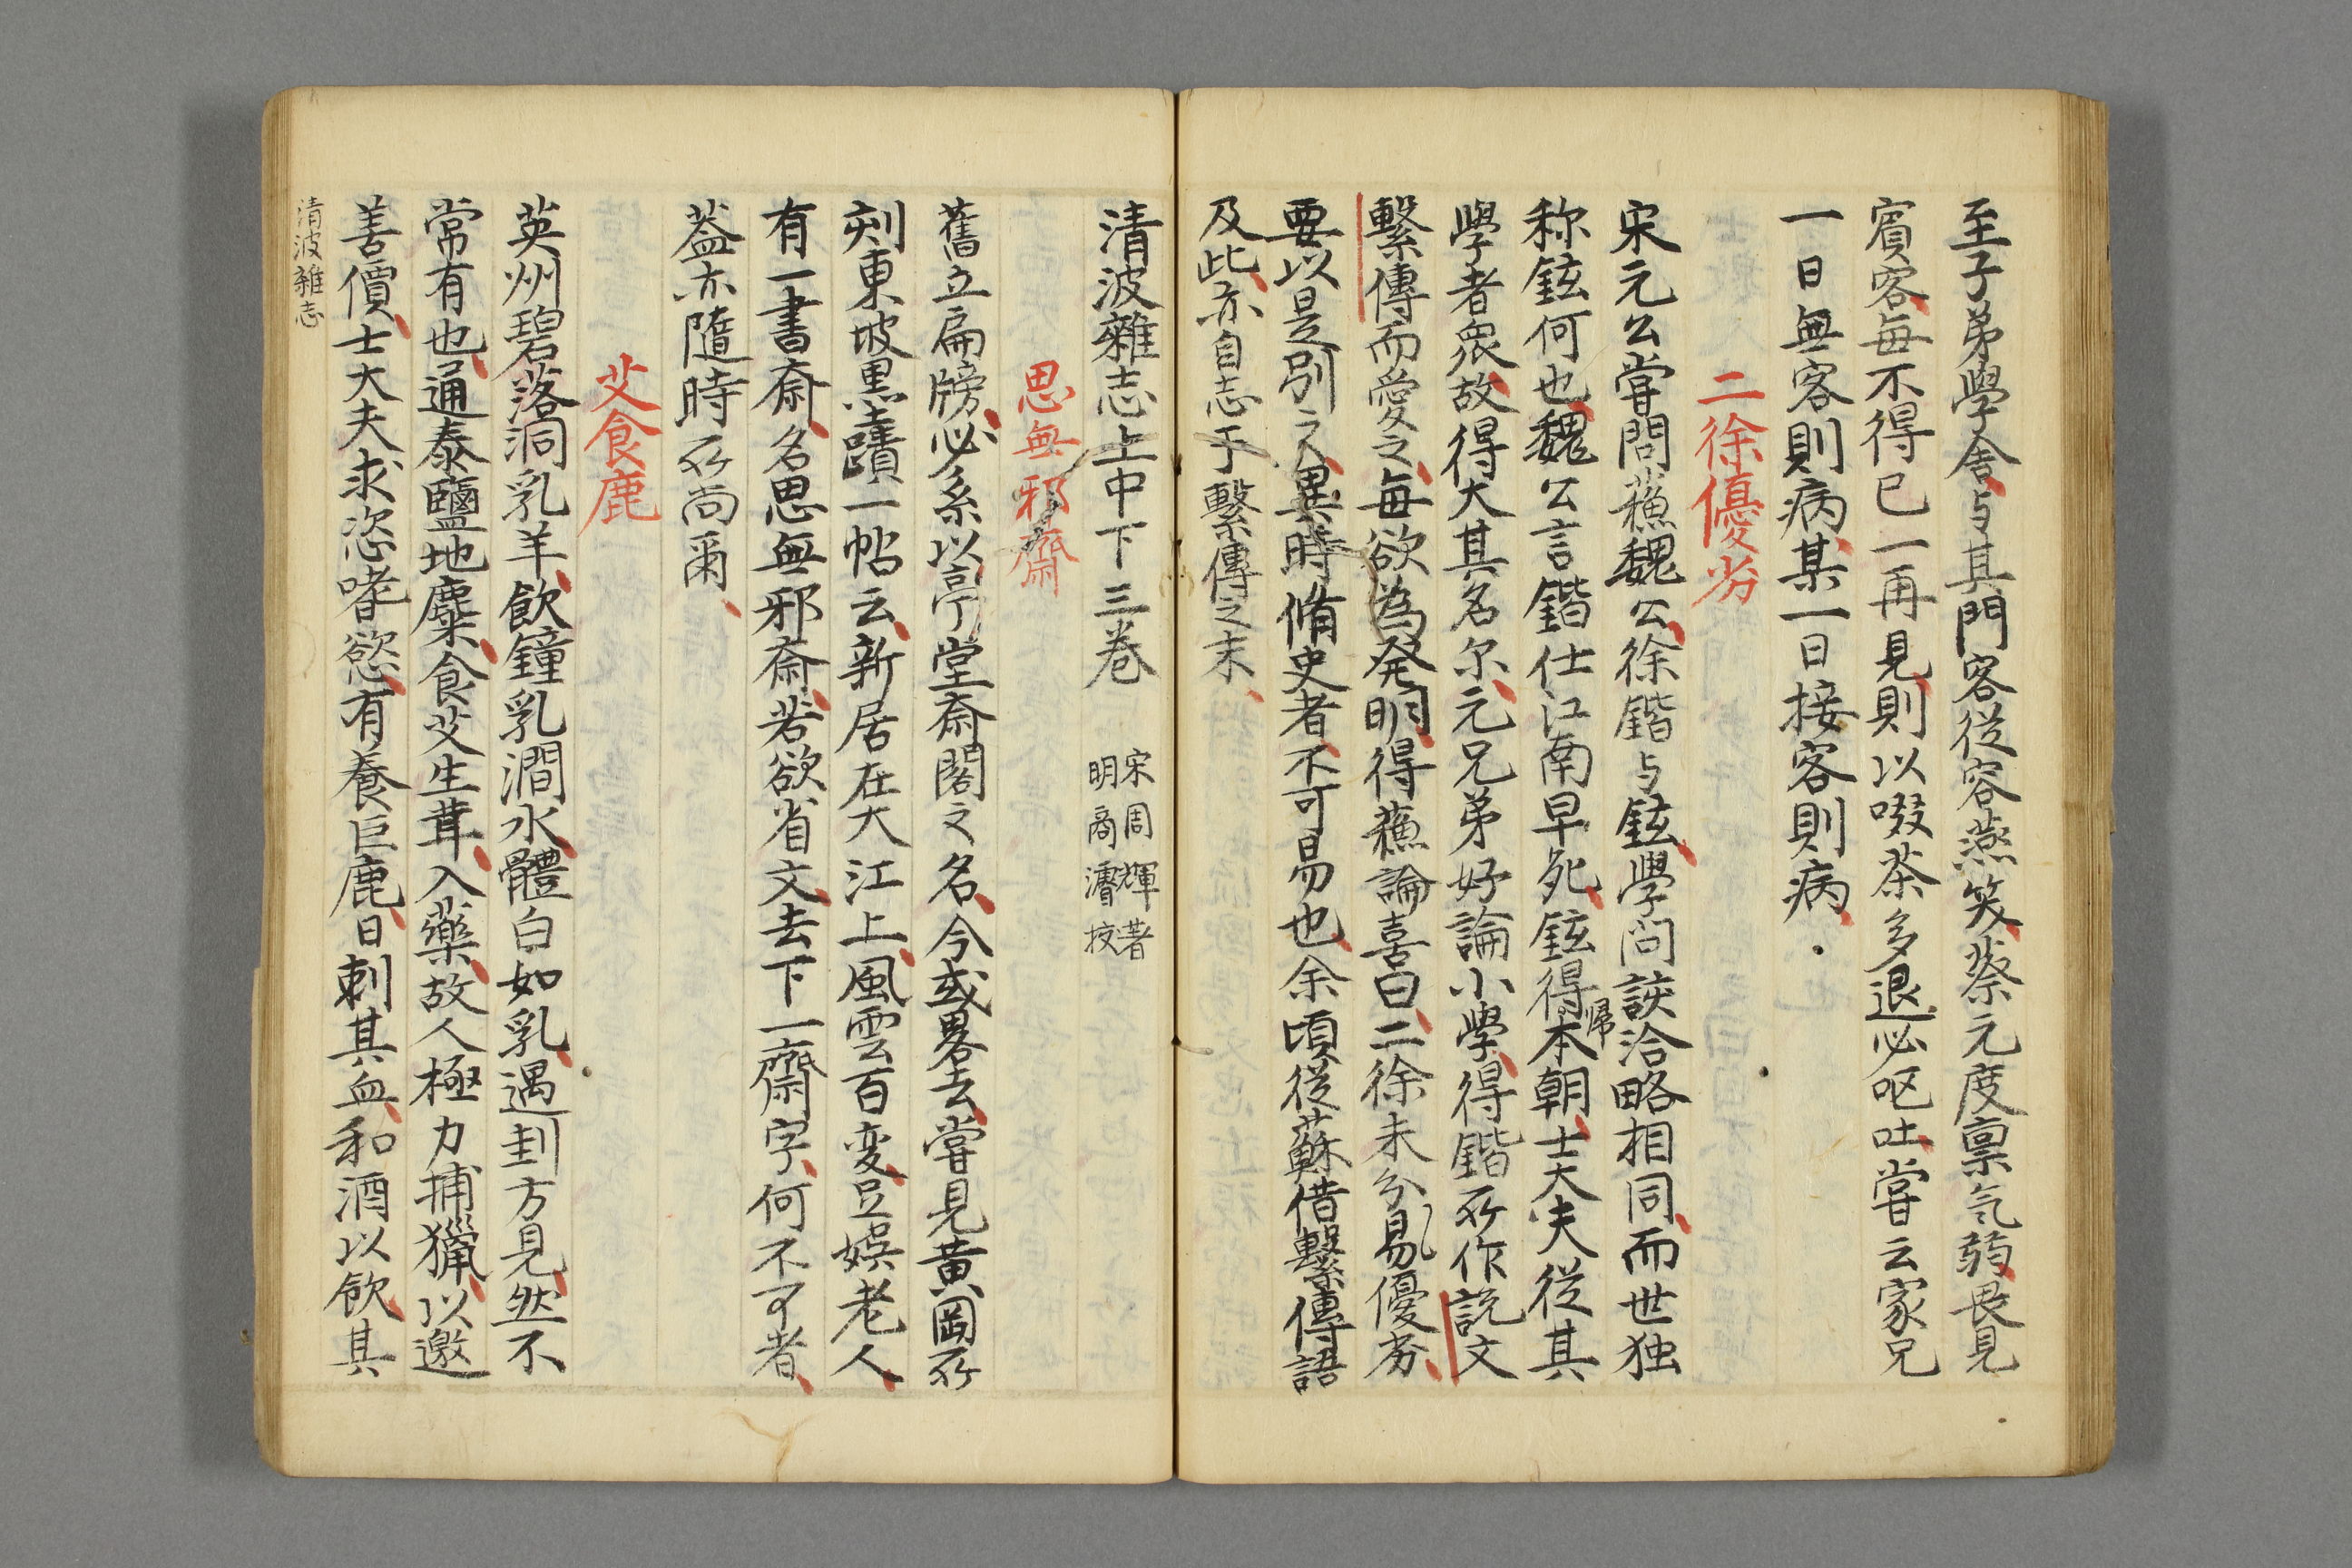 至子弟學舎与其門客從容燕笑蔡元度禀气弱畏見
賓客毎不得已一再見則以啜茶多退必呕吐嘗云家兄
一日無客則病某一日接客則病
二徐優劣
宋元公嘗問蘓魏公徐鍇与鉉學問該洽略相同而世独
称鉉何也魏公言鍇仕江南早死鉉得帰本朝士大夫從其
學者衆故得大其名尓元兄弟好論小學得鍇所作説文
繫傳而愛之毎欲為発明得蘓論喜曰二徐未分易優劣
要以是別之異時脩史者不可易也余頃從蘇借繫傳語
及此亦自志于繫傳之末
清波雜志上中下三巻 宋周輝著
明商濬挍
思無邪齋
舊立扁牓必系以亭堂斎閣之名今或畧去嘗見黄岡所
刻東坡黒蹟一帖云新居在大江上風雲百変足娯老人
有一書斎名思無邪斎若欲省文去下一齋字何不可者
葢亦隨時所尚爾
艾食鹿
英州碧落洞乳羊飲鐘乳澗水體白如乳遇封方見然不
常有也通泰鹽地麋食艾生茸入藥故人極力捕獵以邀
善價士大夫求恣嗜慾有養巨鹿日刺其血和酒以飲其
清波雜志